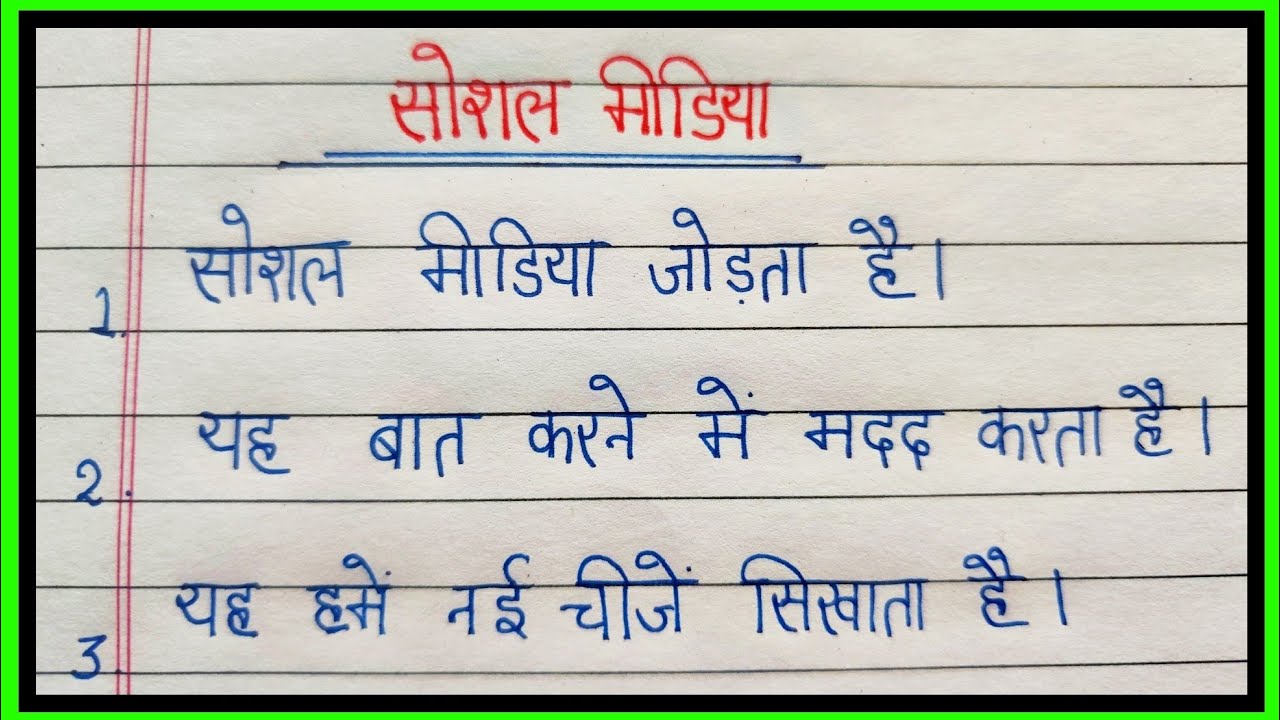 सोशल मीडिया
1. सोशल मीडिया जोड़ता है।
2. यह बात करने में मदद करता है।
3. यह हमें नई चीजें सिखाता है।